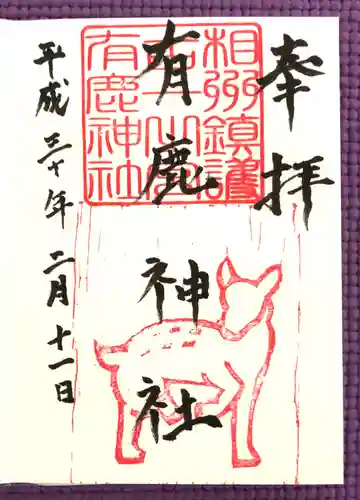 奉拝
有鹿神社
平成三十年二月十一日
相州鎮護
有鹿神社